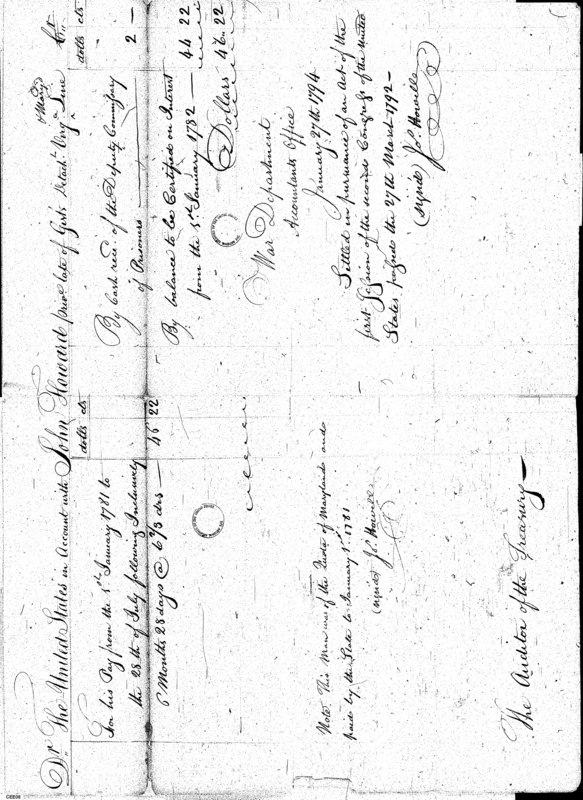 Dr. The United States in Account with John Howard priv.e late of Gist's Detach.t Virg.a & Mary.d Line Cr.
dolls cts
For his Pay from the 1st January 1781 to
the 28th of July following Inclusively
6 Months 28 days @ 6 2/3 drs — 46 22
Note This Man was of the Quota of Maryland and
paid by the State to January 1st 1781
(signed) Js. Howell
The Auditor of the Treasury —
dolls cts
By Cash rec.d of the Deputy Commissary
of Prisoners — 2 —
By balance to be Certified on Interest
from the 1st January 1782 — 44 22
Dollars 46.. 22
War Department
Accountants Office
January 27th 1794
Settled in pursuance of an Act of the
first Session of the second Congress of the United
States passed the 27th March 1792 —
(signed) Js. Howell
CEE08